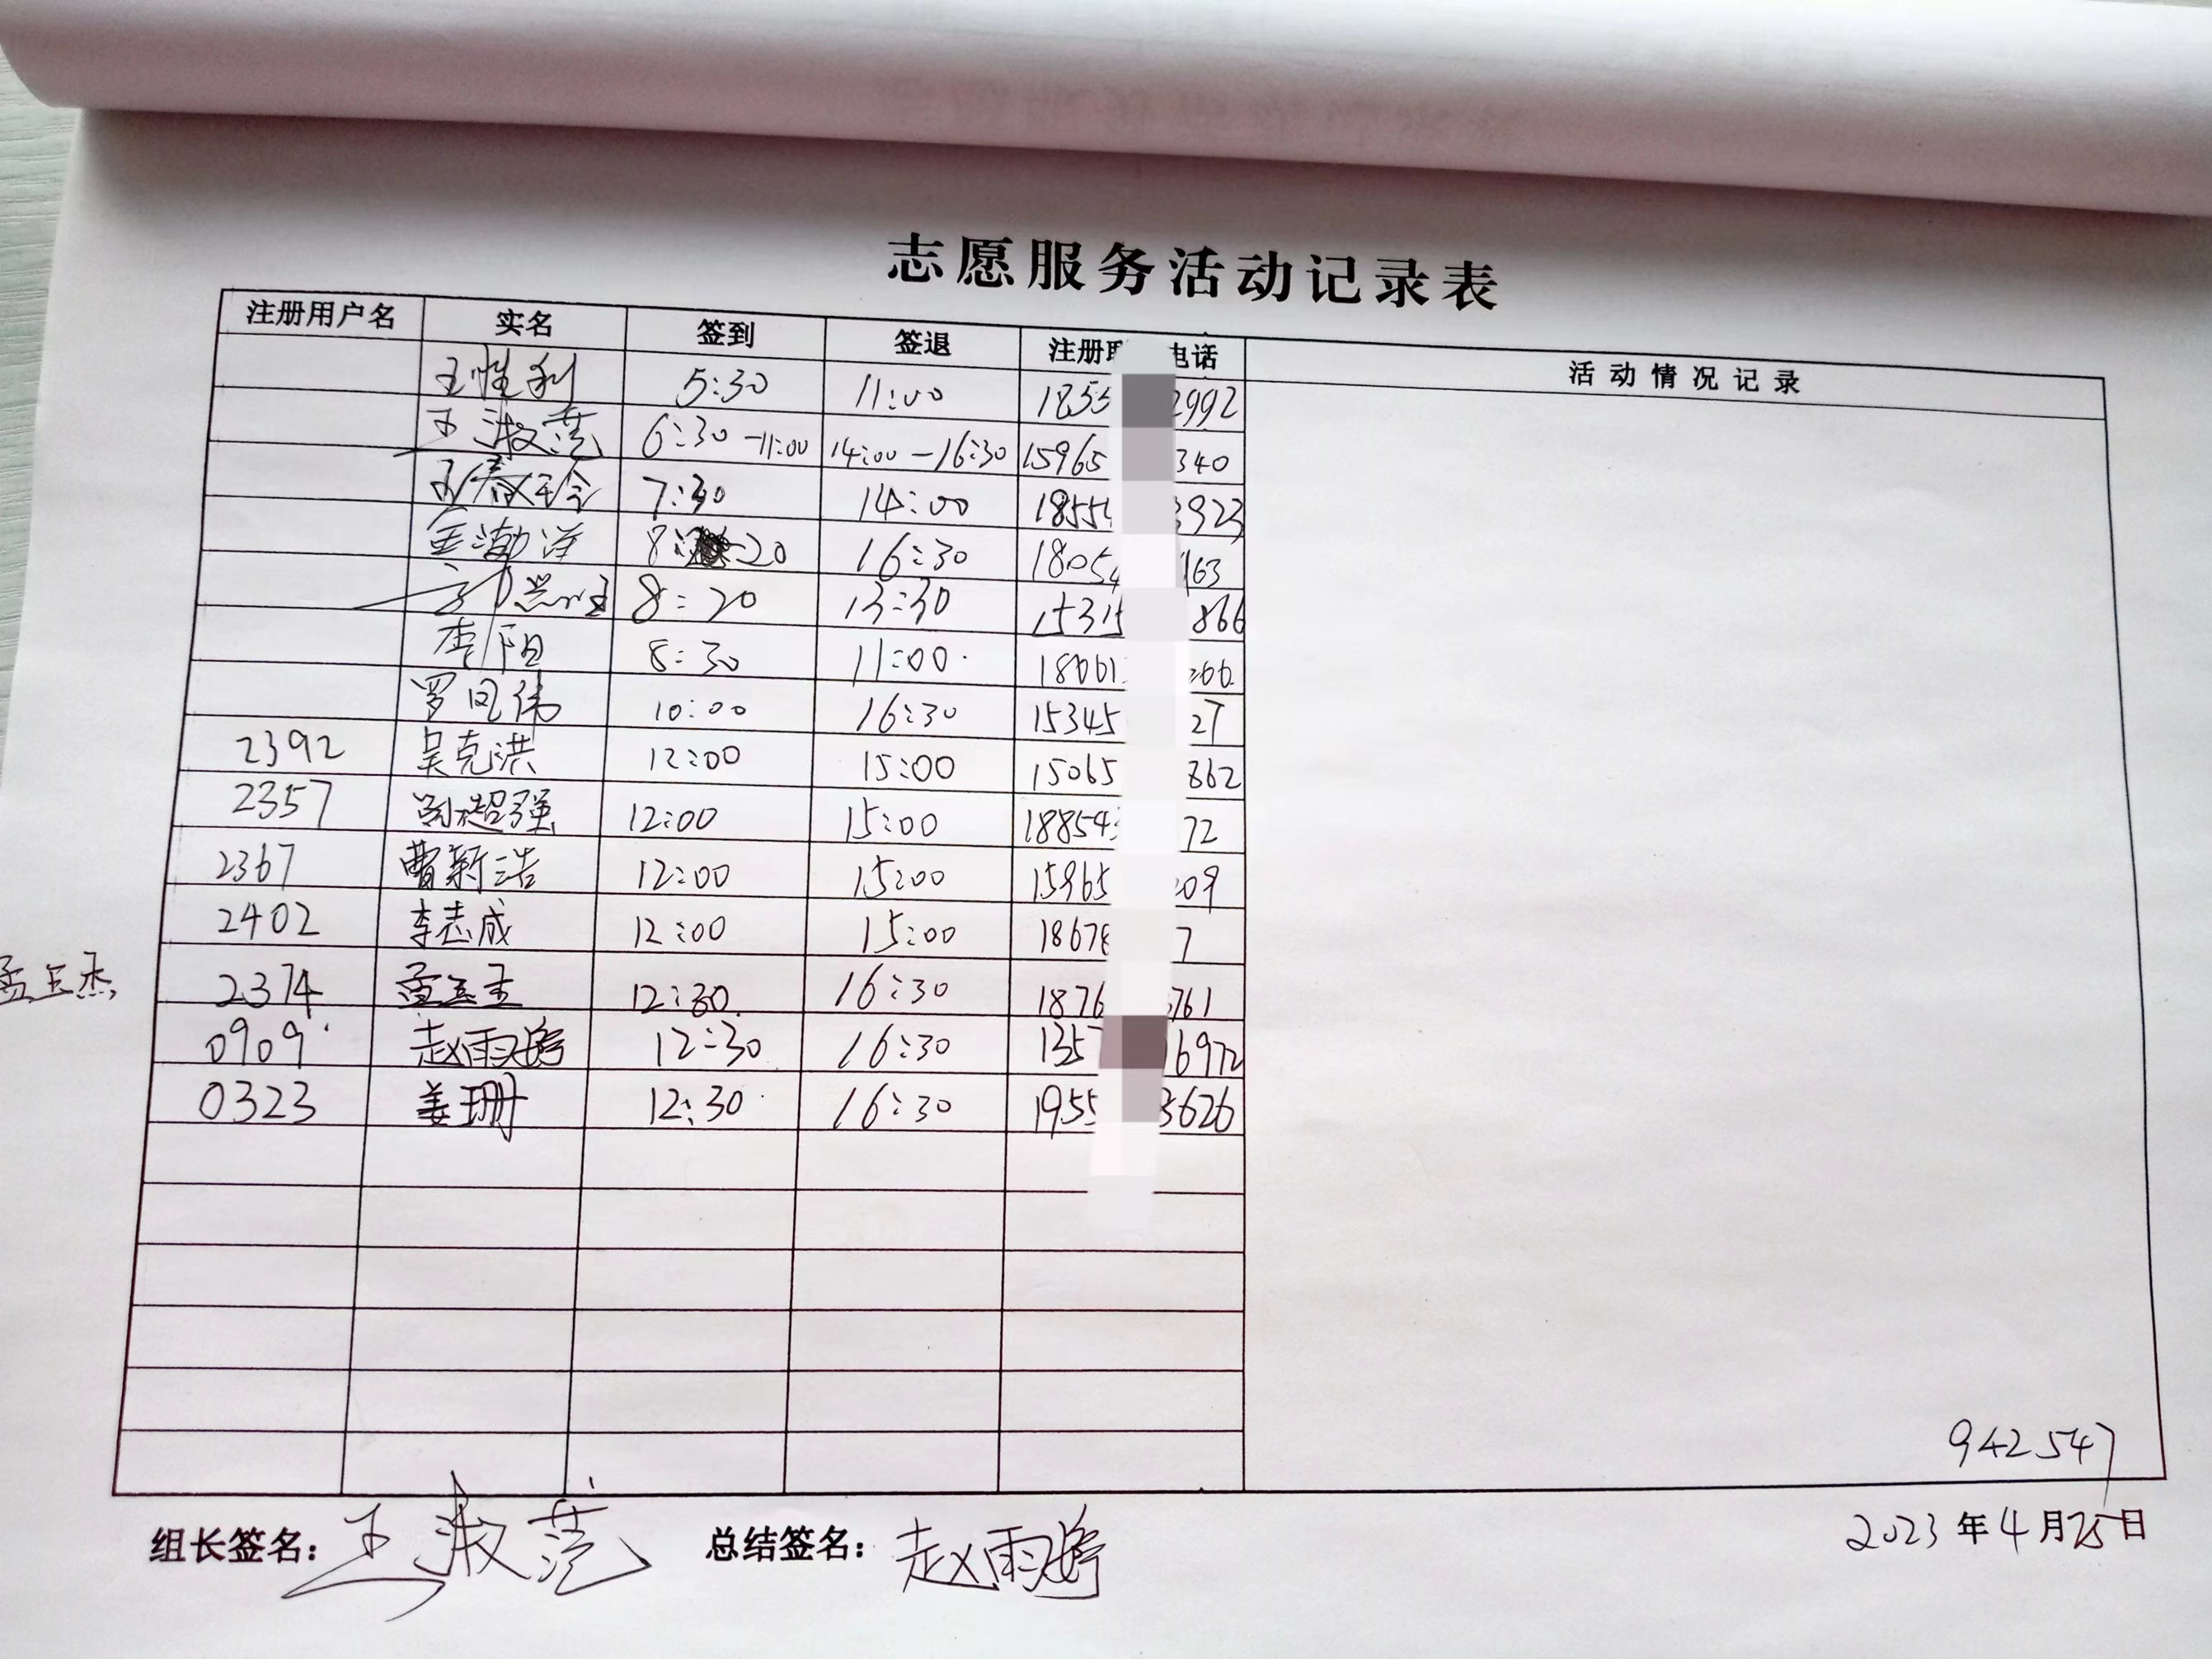 志愿服务活动记录表
注册用户名 实名 签到 签退 注册 电话 活动情况记录
王性利 5:30 11:00 1855 2992
王淑范 6:30-11:00 14:00-16:30 15965 340
7:30 14:00 1855 3923
金渤洋 8:20 16:30 18054 163
8:20 13:30 15315 866
李阳 8:30 11:00 18661 366
罗同伟 10:00 16:30 15345 27
2392 吴克洪 12:00 15:00 15065 862
2357 刘超强 12:00 15:00 18854 72
2367 曹新浩 12:00 15:00 15965 09
2402 李志成 12:00 15:00 18678 7
孟玉杰 2374 12:30 16:30 1876 761
0909 赵雨婷 12:30 16:30 1357 6972
0323 姜珊 12:30 16:30 1955 3626
942547
组长签名: 王淑范 总结签名: 赵雨婷 2023年4月25日